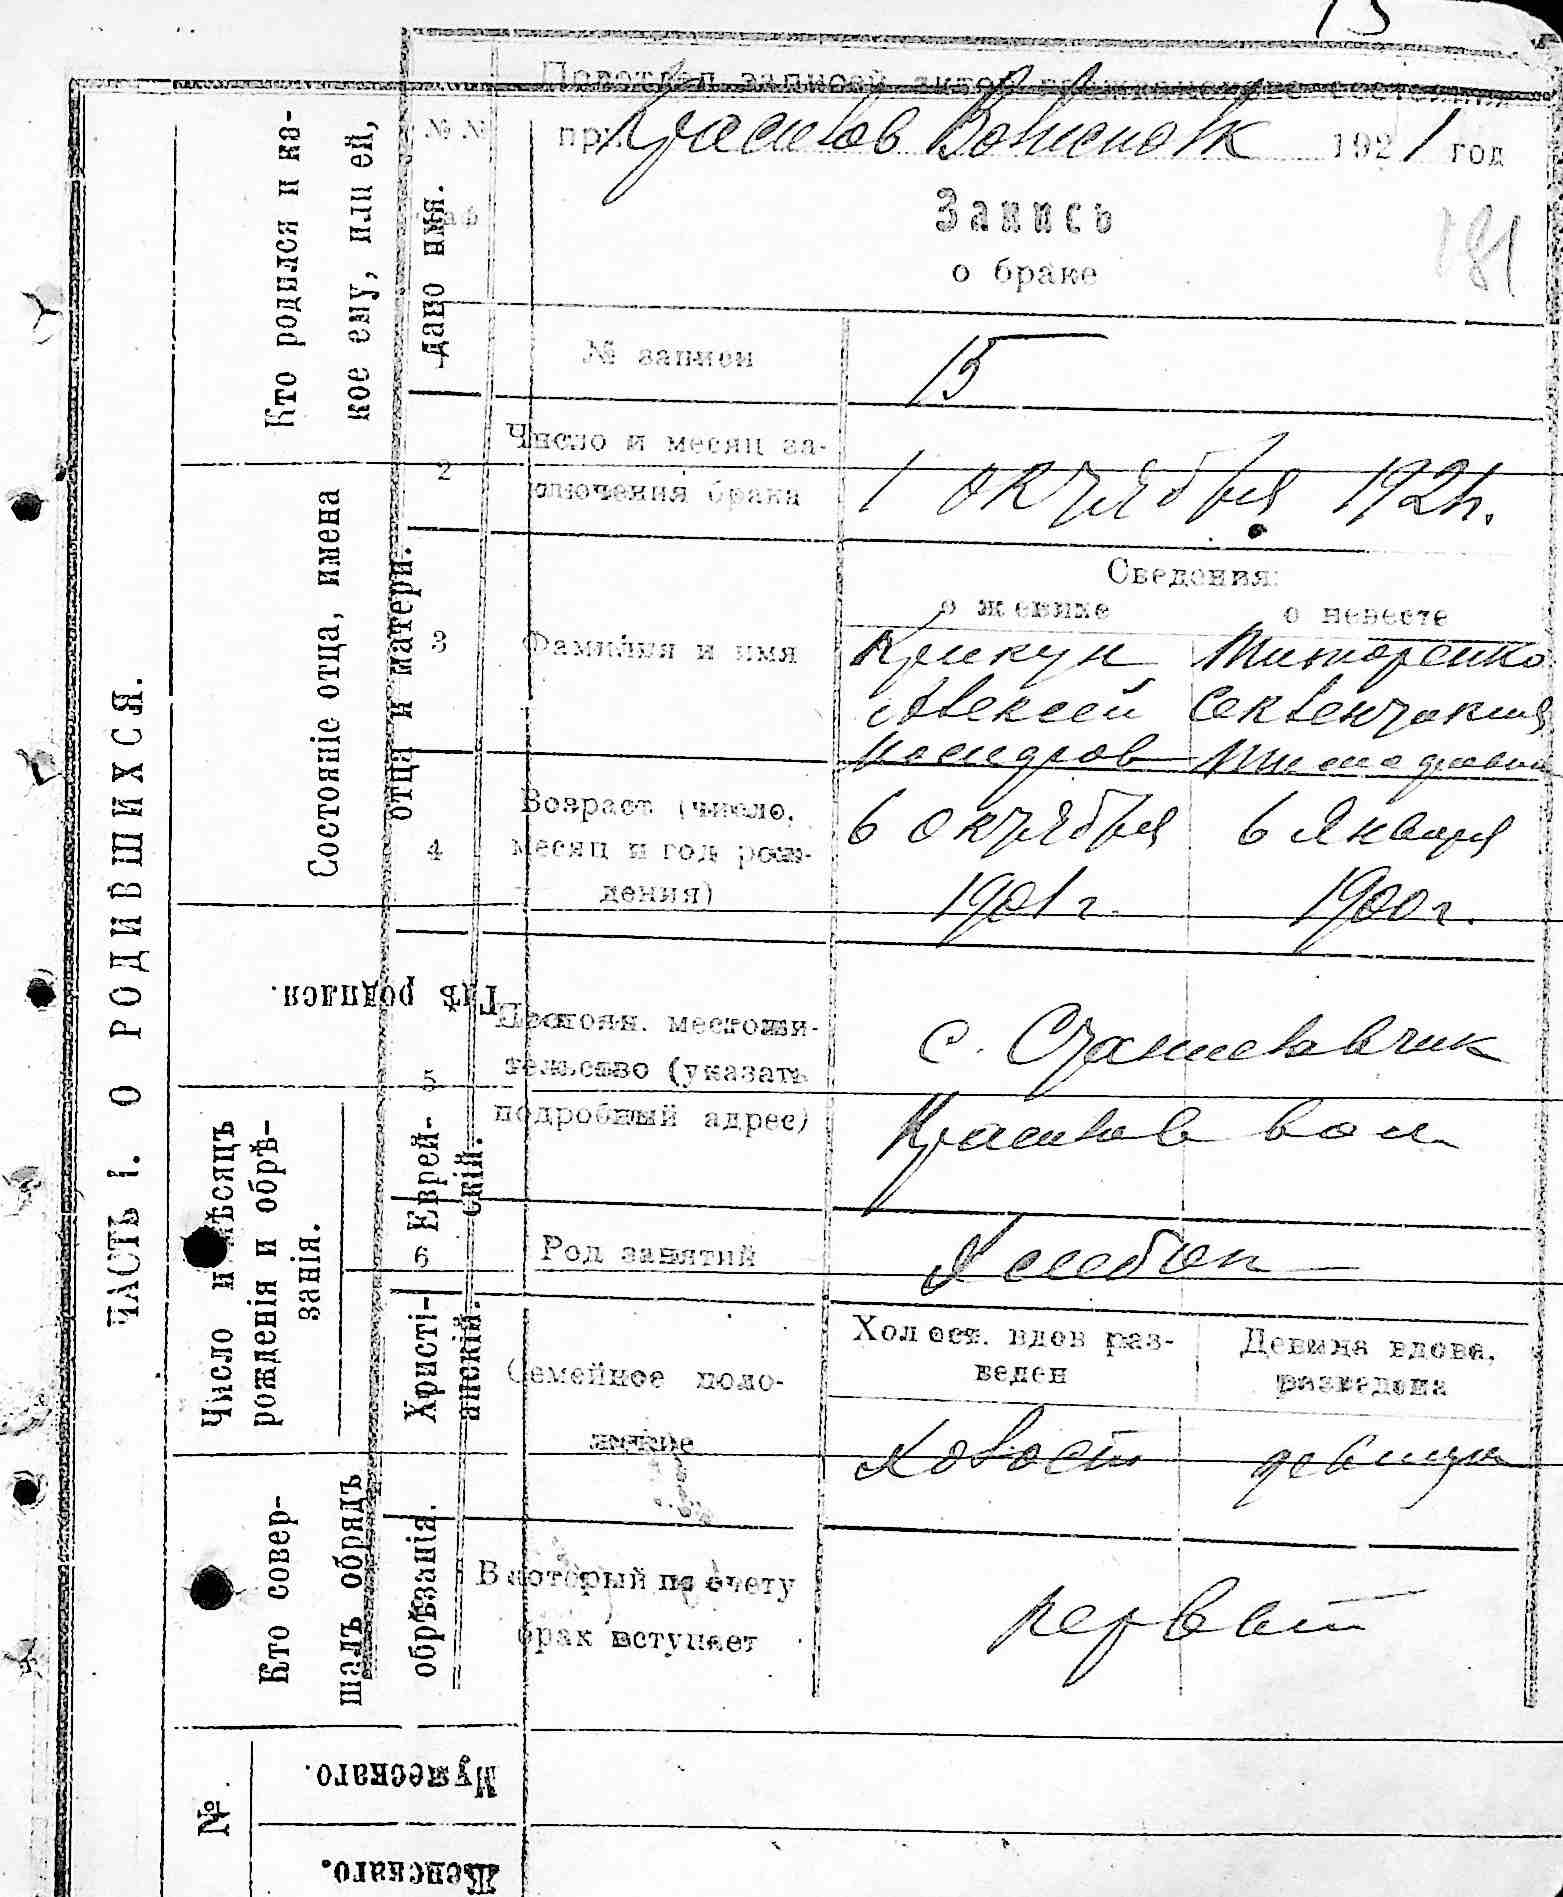 15
Подотдел записей актов гражданского состояния
при Красилов Волисполк 1921 год
№№
Запись
о браке
181
1 № записи 15
2 Число и месяц за-
ключения брака 1 октября 1921г.
Сведения:
о женихе о невесте
3 Фамилия и имя Крикун
Алексей
4 Возраст (число, 6 октября 6 Января
месяц и год рож-
дения) 1901 г. 1900 г.
5 Постоян. местожи-
тельство (указать с. Станиславчик
подробный адрес) Красилов вол
6 Род занятий Хлебоп
Семейное поло-
жение
Холост. вдов раз-
веден
Девица вдова,
разведена
Холост девица
В который по счету
брак вступает первый
ЧАСТЬ I. О РОДИВШИХСЯ.
Кто родился и ка-
кое ему, или ей,
дано имя.
Состояніе отца, имена
отца и матери.
Гдѣ родился.
Число и мѣсяцъ
рожденія и обрѣ-
занія.
Еврей-
скій.
Христі-
анскій.
Кто совер-
шалъ обрядъ
обрѣзанія.
№
Мужескаго.
Женскаго.